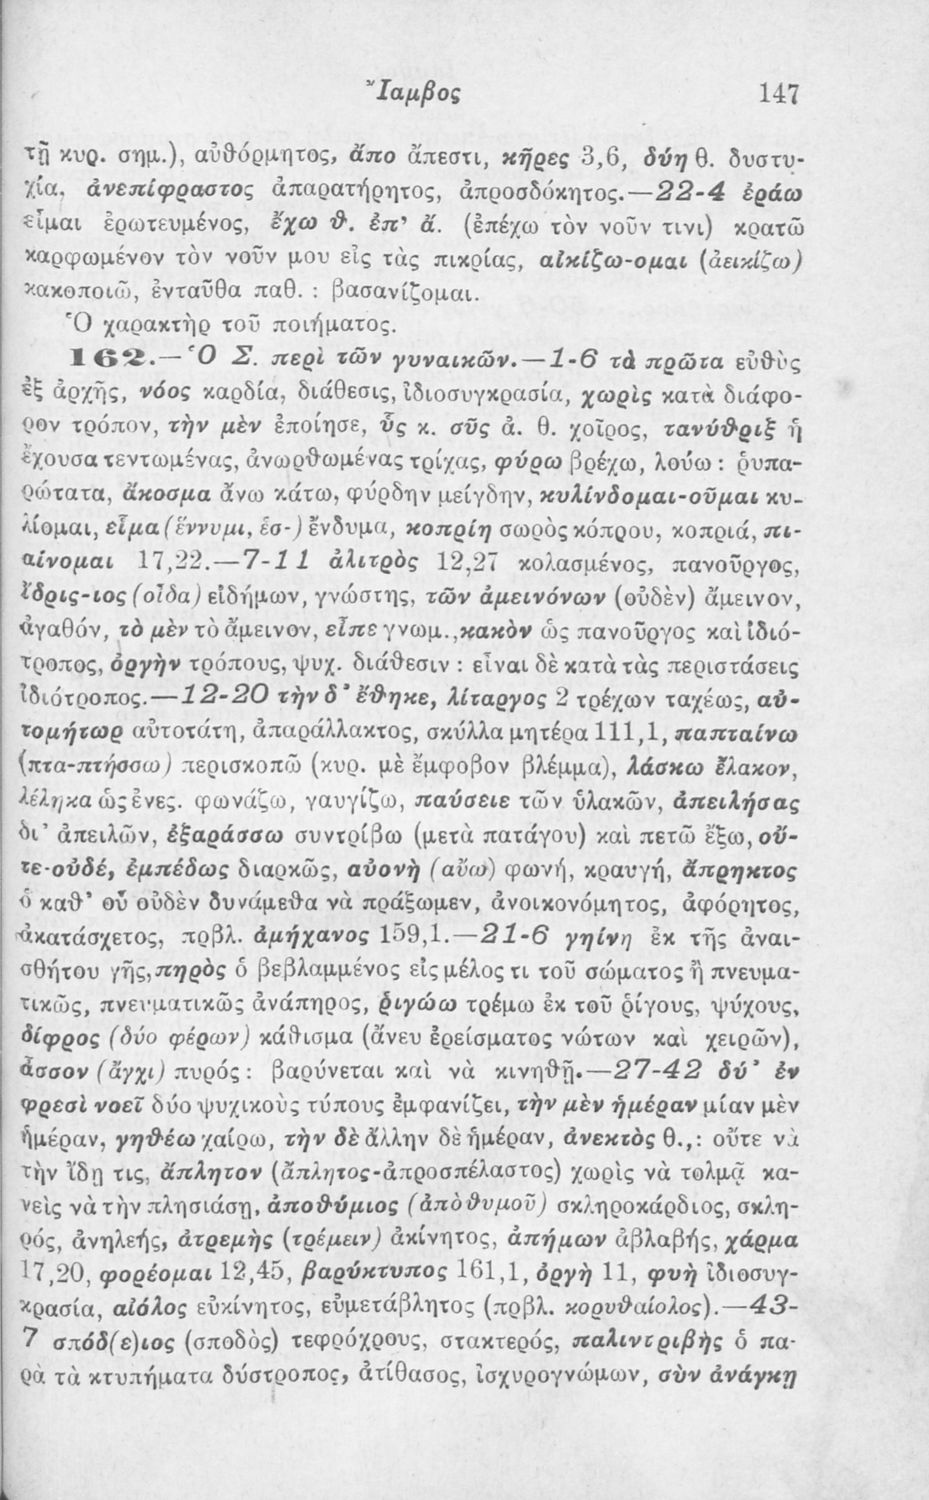 Ἴαμβος 147
τῇ κυρ. σημ.), αὐθόρμητος, ἄπο ἄπεστι, κῆρες 3,6, δύη θ. δυστυ-
χία, ἀνεπίφραστος ἀπαρατήρητος, ἀπροσδόκητος.—22-4 ἐράω
εἶμαι ἐρωτευμένος, ἔχω θ. ἐπ’ ἄ. (ἐπέχω τὸν νοῦν τινι) κρατῶ
καρφωμένον τὸν νοῦν μου εἰς τὰς πικρίας, αἰκίζω-ομαι (ἀεικίζω)
κακοποιῶ, ἐνταῦθα παθ. : βασανίζομαι.
Ὁ χαρακτὴρ τοῦ ποιήματος.
162.—Ὁ Σ. περὶ τῶν γυναικῶν.—1-6 τὰ πρῶτα εὐθὺς
ἐξ ἀρχῆς, νόος καρδία, διάθεσις, ἰδιοσυγκρασία, χωρὶς κατὰ διάφο-
ρον τρόπον, τὴν μὲν ἐποίησε, ὗς κ. σῦς ἀ. θ. χοῖρος, τανύθριξ ἡ
ἔχουσα τεντωμένας, ἀνωρθωμένας τρίχας, φύρω βρέχω, λούω : ῥυπα-
ρώτατα, ἄκοσμα ἄνω κάτω, φύρδην μείγδην, κυλίνδομαι-οῦμαι κυ-
λίομαι, εἷμα (ἕννυμι, ἑσ-) ἔνδυμα, κοπρίη σωρὸς κόπρου, κοπριά, πι-
αίνομαι 17,22.—7-11 ἀλιτρὸς 12,27 κολασμένος, πανοῦργος,
ἴδρις-ιος (οἶδα) εἰδήμων, γνώστης, τῶν ἀμεινόνων (οὐδὲν) ἄμεινον,
ἀγαθόν, τὸ μὲν τὸ ἄμεινον, εἶπε γνωμ., κακὸν ὡς πανοῦργος καὶ ἰδιό-
τροπος, ὀργὴν τρόπους, ψυχ. διάθεσιν : εἶναι δὲ κατὰ τὰς περιστάσεις
ἰδιότροπος.—12-20 τὴν δ’ ἔθηκε, λίταργος 2 τρέχων ταχέως, αὐ-
τομήτωρ αὐτοτάτη, ἀπαράλλακτος, σκύλλα μητέρα 111,1, παπταίνω
(πτα-πτήσσω) περισκοπῶ (κυρ. μὲ ἔμφοβον βλέμμα), λάσκω ἔλακον,
λέληκα ὡς ἐνες. φωνάζω, γαυγίζω, παύσειε τῶν ὑλακῶν, ἀπειλήσας
δι’ ἀπειλῶν, ἐξαράσσω συντρίβω (μετὰ πατάγου) καὶ πετῶ ἔξω, οὔ-
τε-οὐδέ, ἐμπέδως διαρκῶς, αὐονὴ (αὔω) φωνή, κραυγή, ἄπρηκτος
ὁ καθ’ οὗ οὐδὲν δυνάμεθα νὰ πράξωμεν, ἀνοικονόμητος, ἀφόρητος,
ἀκατάσχετος, πρβλ. ἀμήχανος 159,1.—21-6 γηίνη ἐκ τῆς ἀναι-
σθήτου γῆς, πηρὸς ὁ βεβλαμμένος εἰς μέλος τι τοῦ σώματος ἢ πνευμα-
τικῶς, πνευματικῶς ἀνάπηρος, ῥιγώω τρέμω ἐκ τοῦ ῥίγους, ψύχους,
δίφρος (δύο φέρων) κάθισμα (ἄνευ ἐρείσματος νώτων καὶ χειρῶν),
ἆσσον (ἄγχι) πυρός : βαρύνεται καὶ νὰ κινηθῇ.—27-42 δύ’ ἐν
φρεσὶ νοεῖ δύο ψυχικοὺς τύπους ἐμφανίζει, τὴν μὲν ἡμέραν μίαν μὲν
ἡμέραν, γηθέω χαίρω, τὴν δὲ ἄλλην δὲ ἡμέραν, ἀνεκτὸς θ.,: οὔτε νὰ
τὴν ἴδῃ τις, ἄπλητον (ἄπλητος-ἀπροσπέλαστος) χωρὶς νὰ τολμᾷ κα-
νεὶς νὰ τὴν πλησιάσῃ, ἀποθύμιος (ἀπὸ θυμοῦ) σκληροκάρδιος, σκλη-
ρός, ἀνηλεής, ἀτρεμὴς (τρέμειν) ἀκίνητος, ἀπήμων ἀβλαβής, χάρμα
17,20, φορέομαι 12,45, βαρύκτυπος 161,1, ὀργὴ 11, φυὴ ἰδιοσυγ-
κρασία, αἰόλος εὐκίνητος, εὐμετάβλητος (πρβλ. κορυθαίολος).—43-
7 σπόδ(ε)ιος (σποδὸς) τεφρόχρους, στακτερός, παλιντριβὴς ὁ πα-
ρὰ τὰ κτυπήματα δύστροπος, ἀτίθασος, ἰσχυρογνώμων, σὺν ἀνάγκῃ